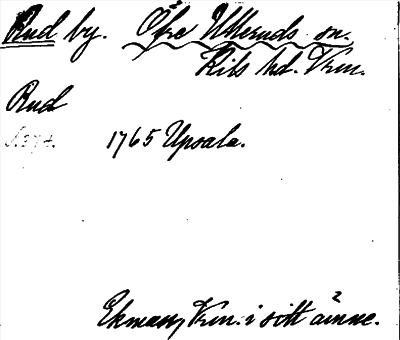 Rud by. Öfre Ulleruds sn.
Kils hd. Vrm.
Rud
1765 Upsala.
Ekman, Vrm. i sitt ämne.